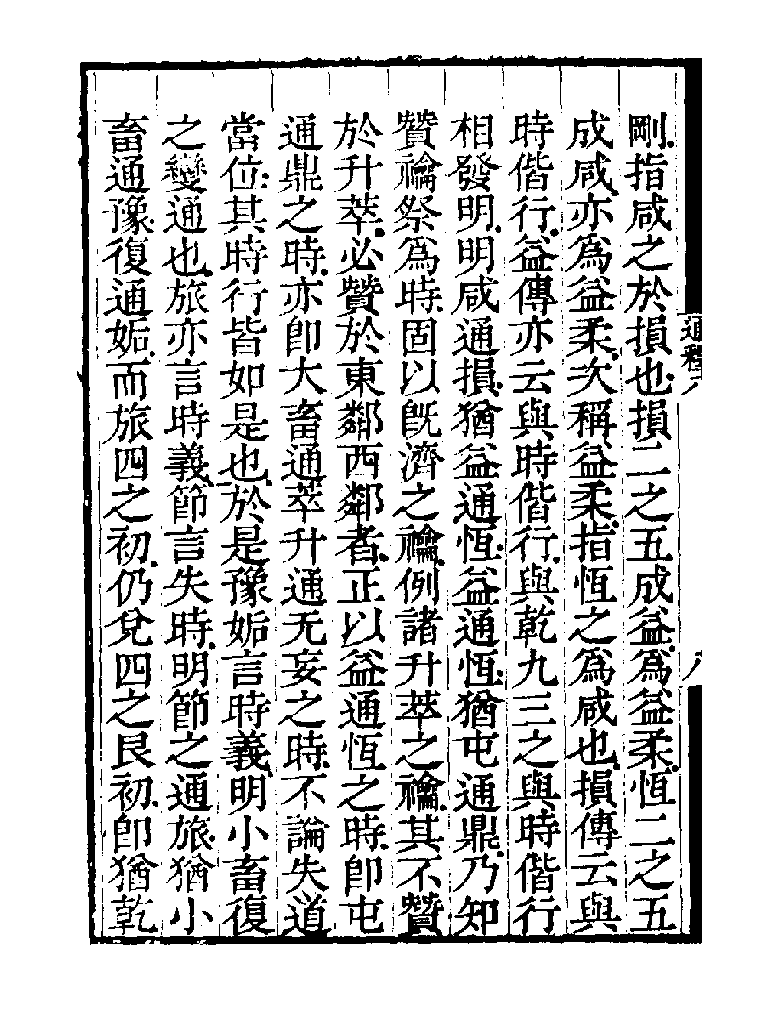 剛指咸之於損也損二之五成益爲益柔恆二之五
成咸亦爲益柔次稱益柔指恆之爲咸也損傳云與
時偕行益傳亦云與時偕行與乾九三之與時偕行
相發明明咸通損猶益通恆益通恆猶屯通鼎乃知
贊禴祭爲時固以旣濟之禴例諸升萃之禴其不贊
於升萃必贊於東鄰西鄰者正以益通恆之時卽屯
通鼎之時亦卽大畜通萃升通无妄之時不論失道
當位其時行皆如是也於是豫姤言時義明小畜復
之變通也旅亦言時義節言失時明節之通旅猶小
畜通豫復通姤而旅四之初仍兌四之艮初卽猶乾
通釋八
八